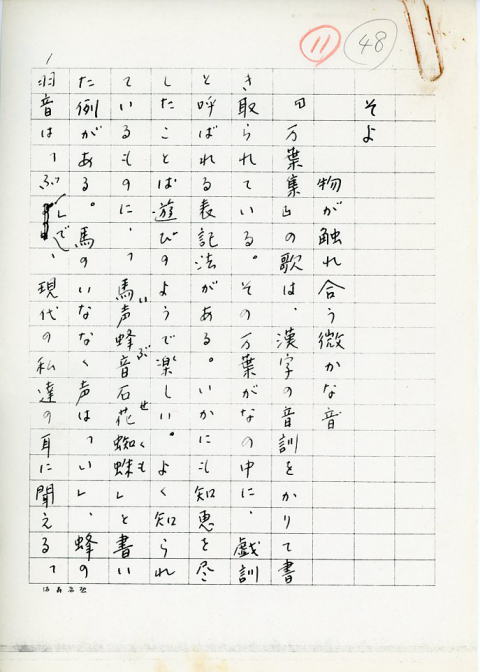 11
48
1
そよ
物が触れ合う微かな音
『万葉集』の歌は、漢字の音訓をかりて書
き取られている。その万葉がなの中に、戯訓
と呼ばれる表記法がある。いかにも知恵を尽
したことば遊びのようで楽しい。よく知られ
ているものに、「馬声蜂音石花蜘蛛」と書い
い ぶ せ くも
た例がある。馬のいななく声は「い」、蜂の
羽音は「ぶ」で、現代の私達の耳に聞える「